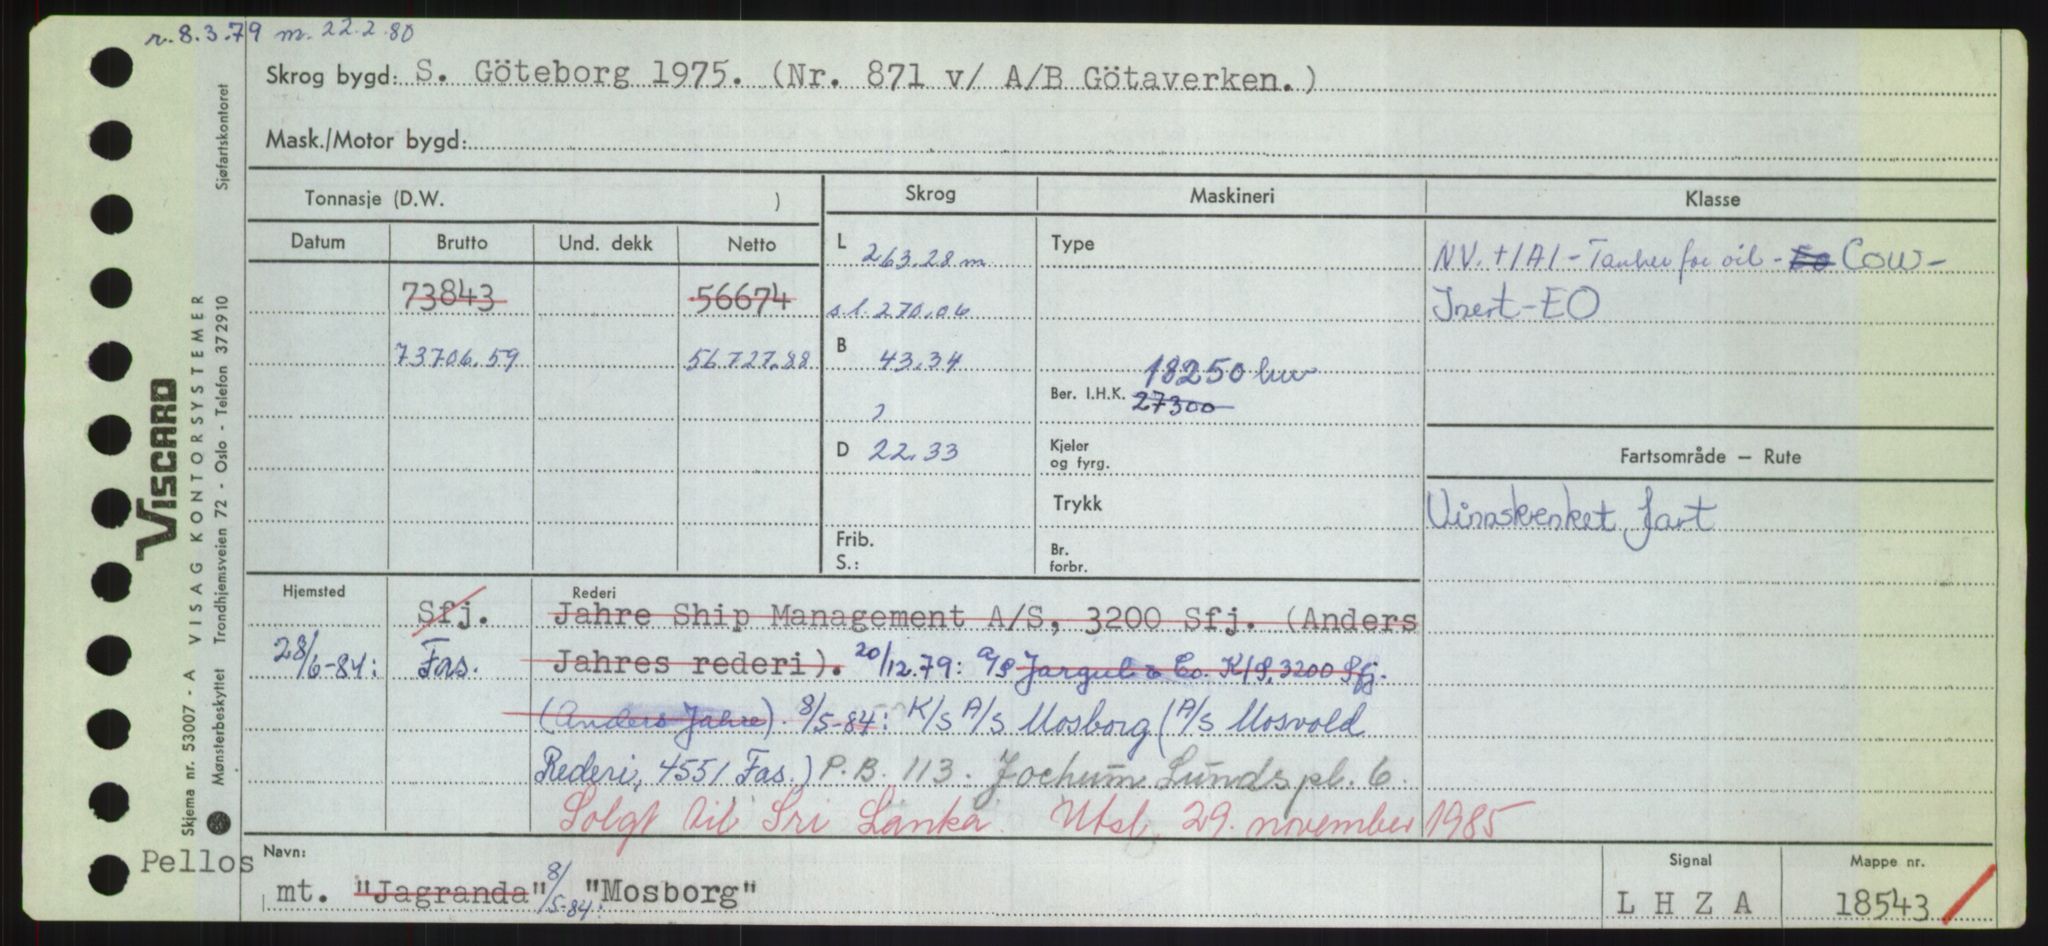 r. 8.3.79 m. 22.2.80
Skrog bygd: S. Göteborg 1975. (Nr. 871 v/ A/B Götaverken.)
Mask./Motor bygd:
Tonnasje (D.W. )
Skrog
Maskineri
Klasse
Datum Brutto Und. dekk Netto
L 263.28 m
Type
NV. +1A1 - Tanker for oil - EO COW -
73843 56674
s.l. 270.06
Inert - EO
73706.59 56.727.88
B 43.34
18250 hw
Ber. I.H.K. 27300
D 22.33
Kjeler
og fyrg.
Fartsområde — Rute
Trykk
Uinnskrenket fart
Frib.
S.:
Br.
forbr.
Hjemsted
Rederi
Sfj. Jahre Ship Management A/S, 3200 Sfj. (Anders
28/6-84: Fas. Jahres rederi). 20/12.79: A/S Jargul & Co. K/S, 3200 Sfj.
(Anders Jahre). 8/5-84: K/S A/S Mosborg (A/S Mosvold
Rederi, 4551 Fas.) P.B. 113. Jochum Lunds pl. 6.
Solgt til Sri Lanka. Utsl. 29. november 1985
Navn:
Signal
Mappe nr.
Pellos
mt. "Jagranda" 8/5-84: "Mosborg"
L H Z A
18543
VISCARD
VISAG KONTORSYSTEMER
Skjema nr. 53007 - A
Sjøfartskontoret
Trondhjemsveien 72 - Oslo - Telefon 372910
Mønsterbeskyttet